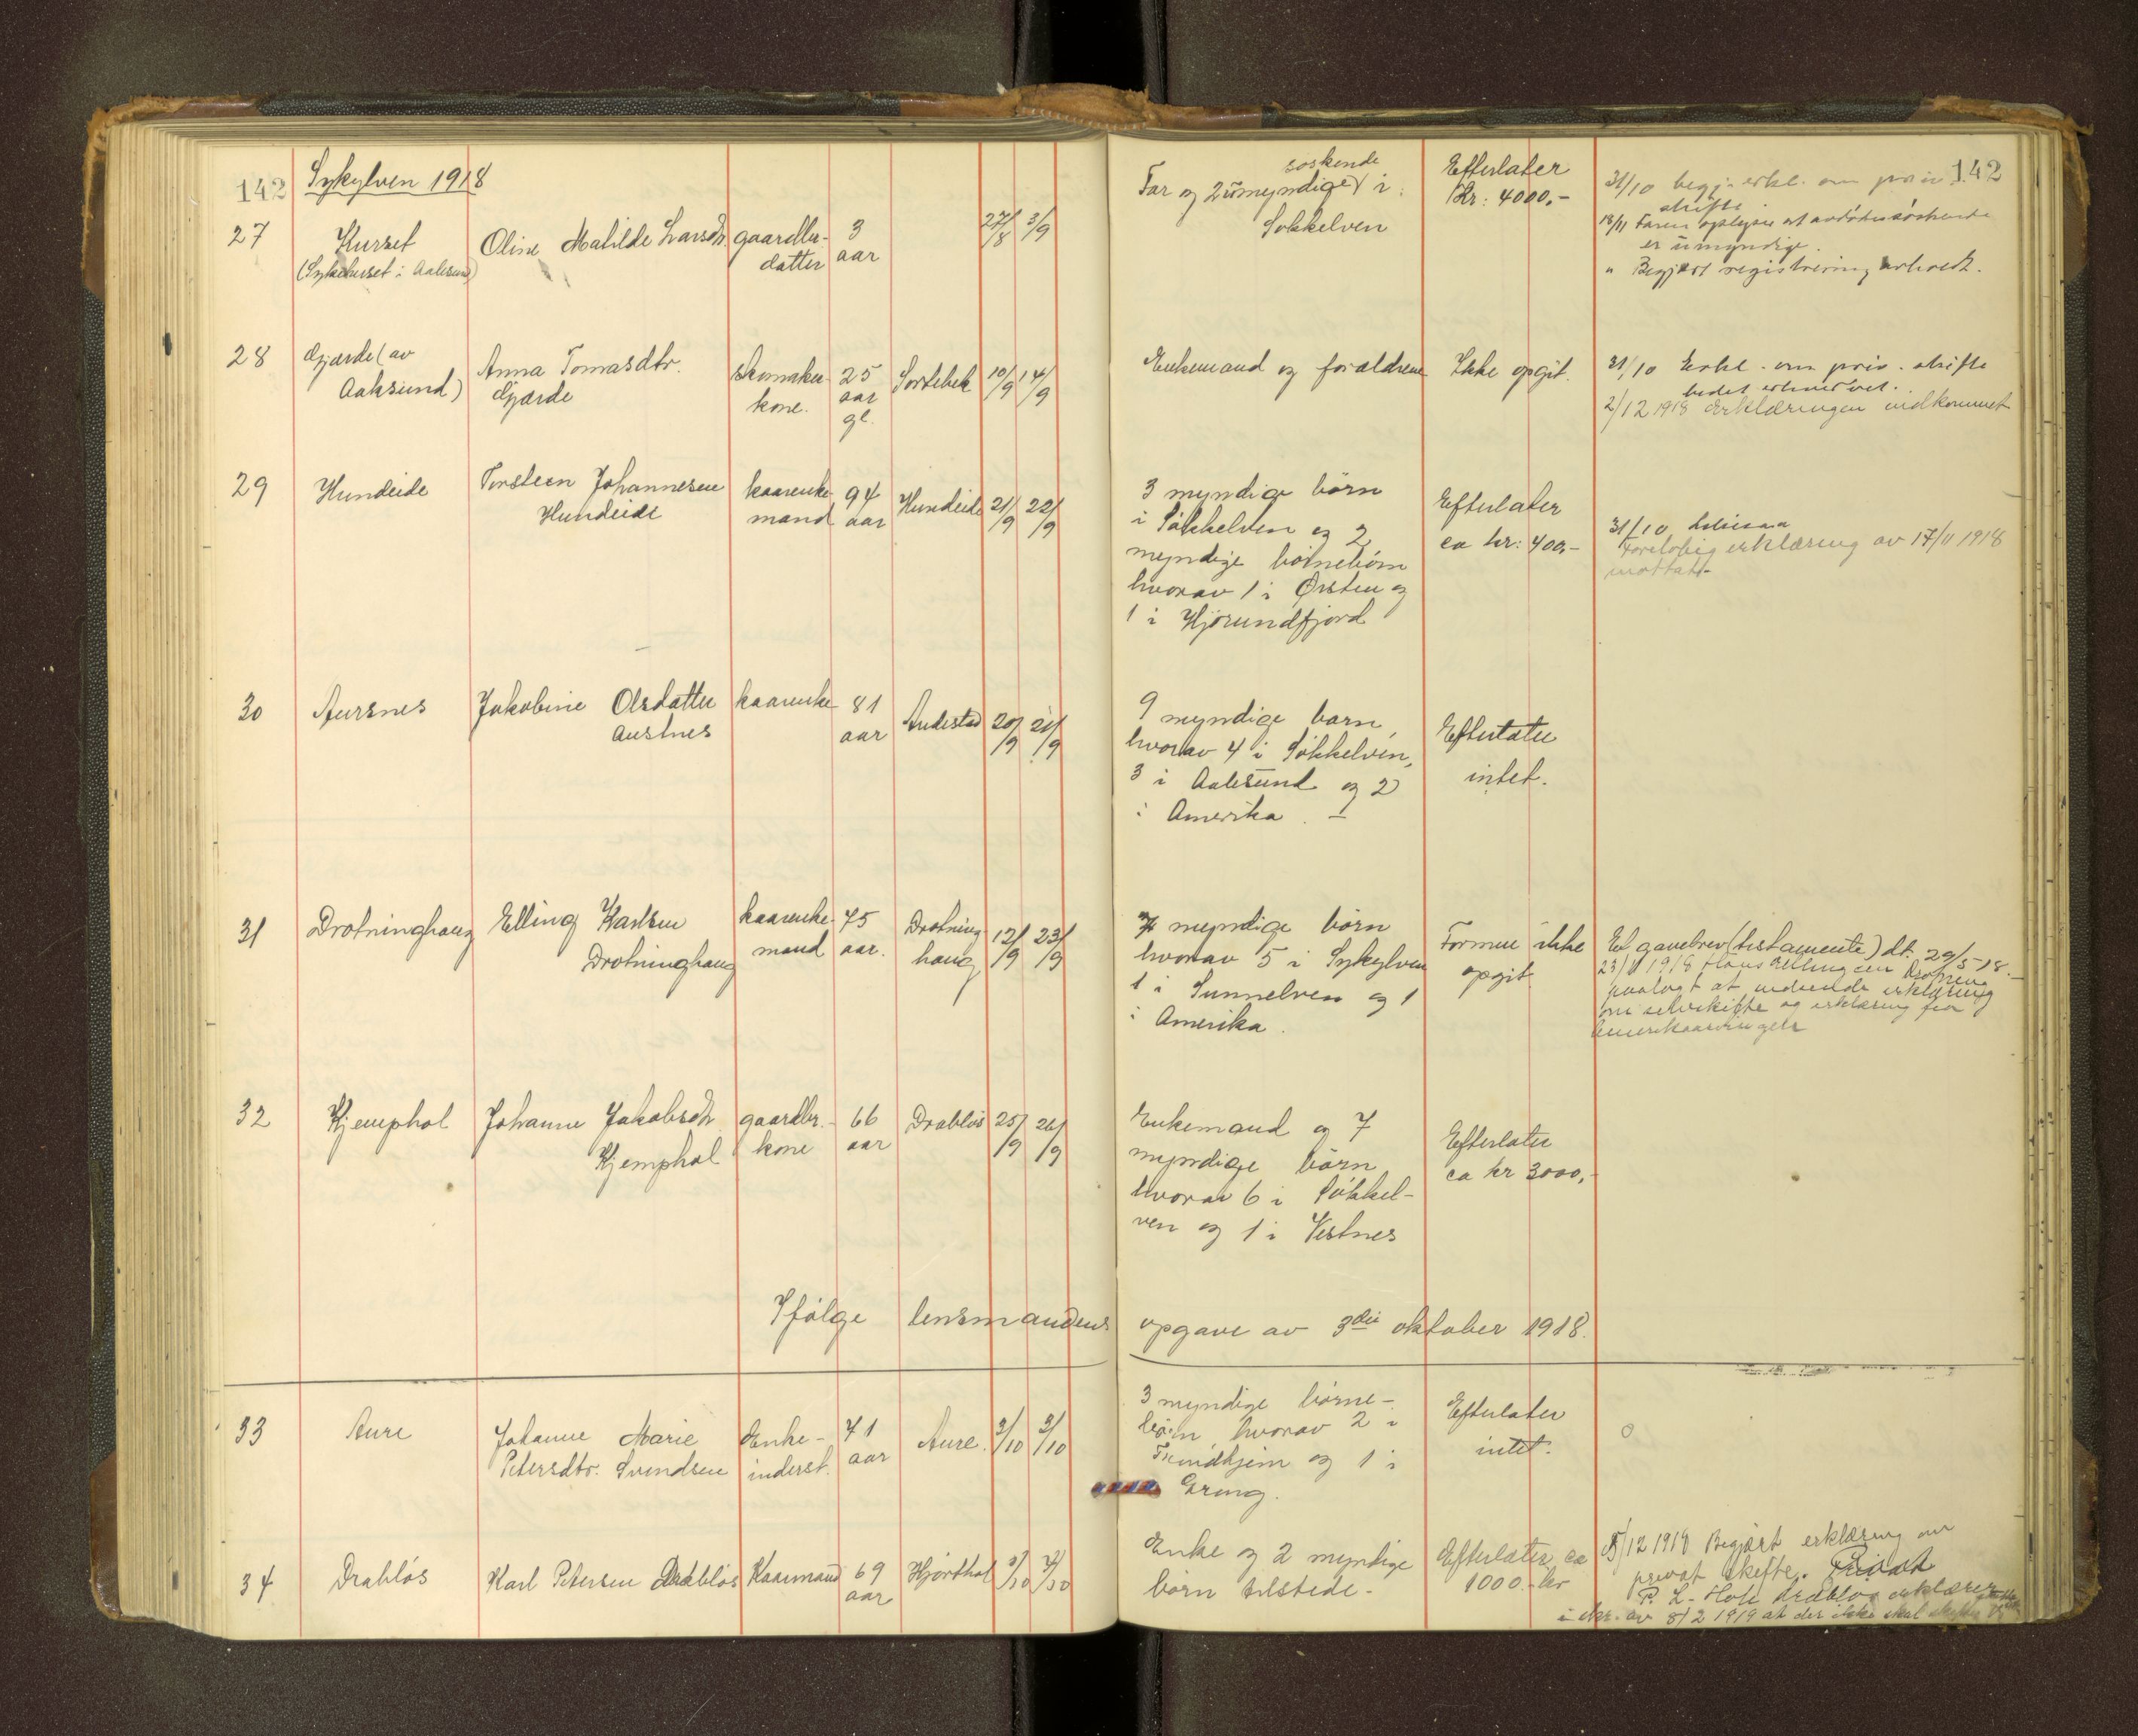 142 Sykylven 1918
142
27 Kurset Oline Mathilde Larsdtr. gaardbr.- 3 27/8 3/9
(Sykehuset i Aalesund) datter aar
søskende
Far og 2 umyndige i
Søkkelven
Efterlater
Kr: 4000,-
31/10 begj. erkl. om priv.
skifte
18/11 Faren oplyser at avdødes søskende
er umyndige.
" Begjært registrering avholdt.
28 Gjærde (av Anna Tomasdtr. skomaker- 25 Sortebek 10/9 14/9
Aalesund) Gjærde kone. aar
gl.
Enkemand og forældrene Ikke opgit.
31/10 Erkl. om priv. skifte
bedet erhvervet.
2/12 1918 Erklæringen indkommet
29 Hundeide Torsteen Johannesen kaarenke- 94 Hundeide 21/9 22/9
Hundeide mand aar
3 myndige børn
i Søkkelven og 2
myndige børnebørn
hvorav 1 i Ørsten og
1 i Hjørundfjord
Efterlater
ca kr: 400,-
31/10
Foreløbig erklæring av 17/11 1918
mottatt
30 Aursnes Jakobine Olsdatter kaarenke 81 Andestad 20/9 21/9
Aursnes aar
9 myndige barn,
hvorav 4 i Søkkelven,
3 i Aalesund og 2
i Amerika. -
Efterlater
intet.
31 Drotninghaug Elling Karlsen kaarenke- 75 Drotning 12/9 23/9
Drotninghaug mand aar. haug
7 myndige børn
hvorav 5 i Sykylven
1 i Sunnelven og 1
i Amerika.
Formue ikke
opgit
Et gavebrev (testamente) dt. 29/5 18.
23/11 1918 Hans Ellingsen Drotning
paalagt at indsende erklæring
om selvskifte og erklæring fra
Amerikaarvingen
32 Kjemphol Johanne Jakobsdtr. gaardbr.- 66 Drabløs 25/9 26/9
Kjemphol kone aar
Enkemand og 7
myndige børn
hvorav 6 i Søkkel-
ven og 1 i Vestnes
Efterlater
ca kr 3000,-
Ifølge lensmandens opgave av 3die oktober 1918.
33 Aure Johanne Marie Enke- 71 Aure. 2/10 3/10
Petersdtr. Svendsen inderst. aar
3 myndige børne-
børn hvorav 2 i
Trondhjem og 1 i
Grong.
Efterlater
intet.
0
34 Drabløs Karl Petersen Drabløs Kaarmand 69 Hjorthol 3/10 4/10
aar
Enke og 2 myndige
børn tilstede.-
Efterlater ca
1000.- kr
5/12 1918 Begjært erklæring om
privat skifte.
P. L. Hole Drabløs erklærer
i skr. av 8/2 1919 at der ikke skal skiftes